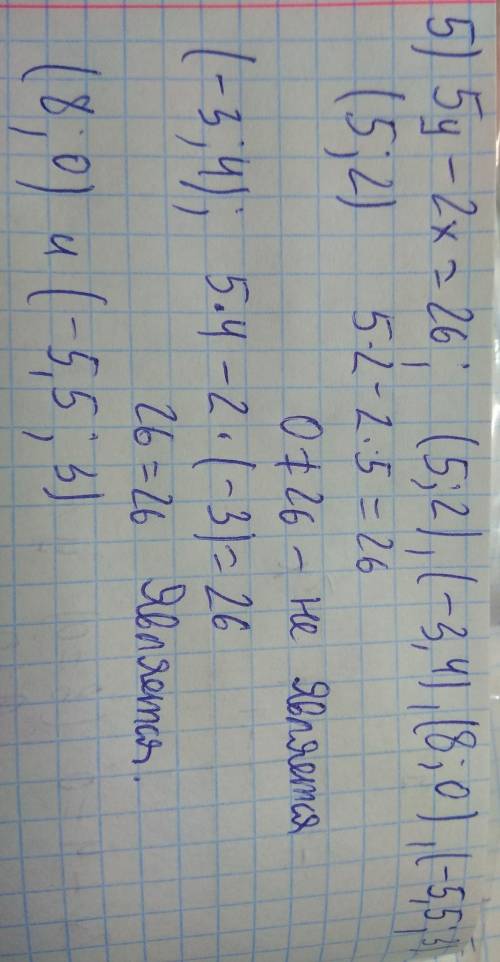 5) 5y - 2x = 26; (5; 2), (-3, 4), (8; 0), (-5,5; 3)
(5; 2) 5·2 - 2·5 = 26
0 ≠ 26 - не является
(-3; 4); 5·4 - 2·(-3) = 26
26 = 26 является.
(8; 0) и (-5,5; 3)